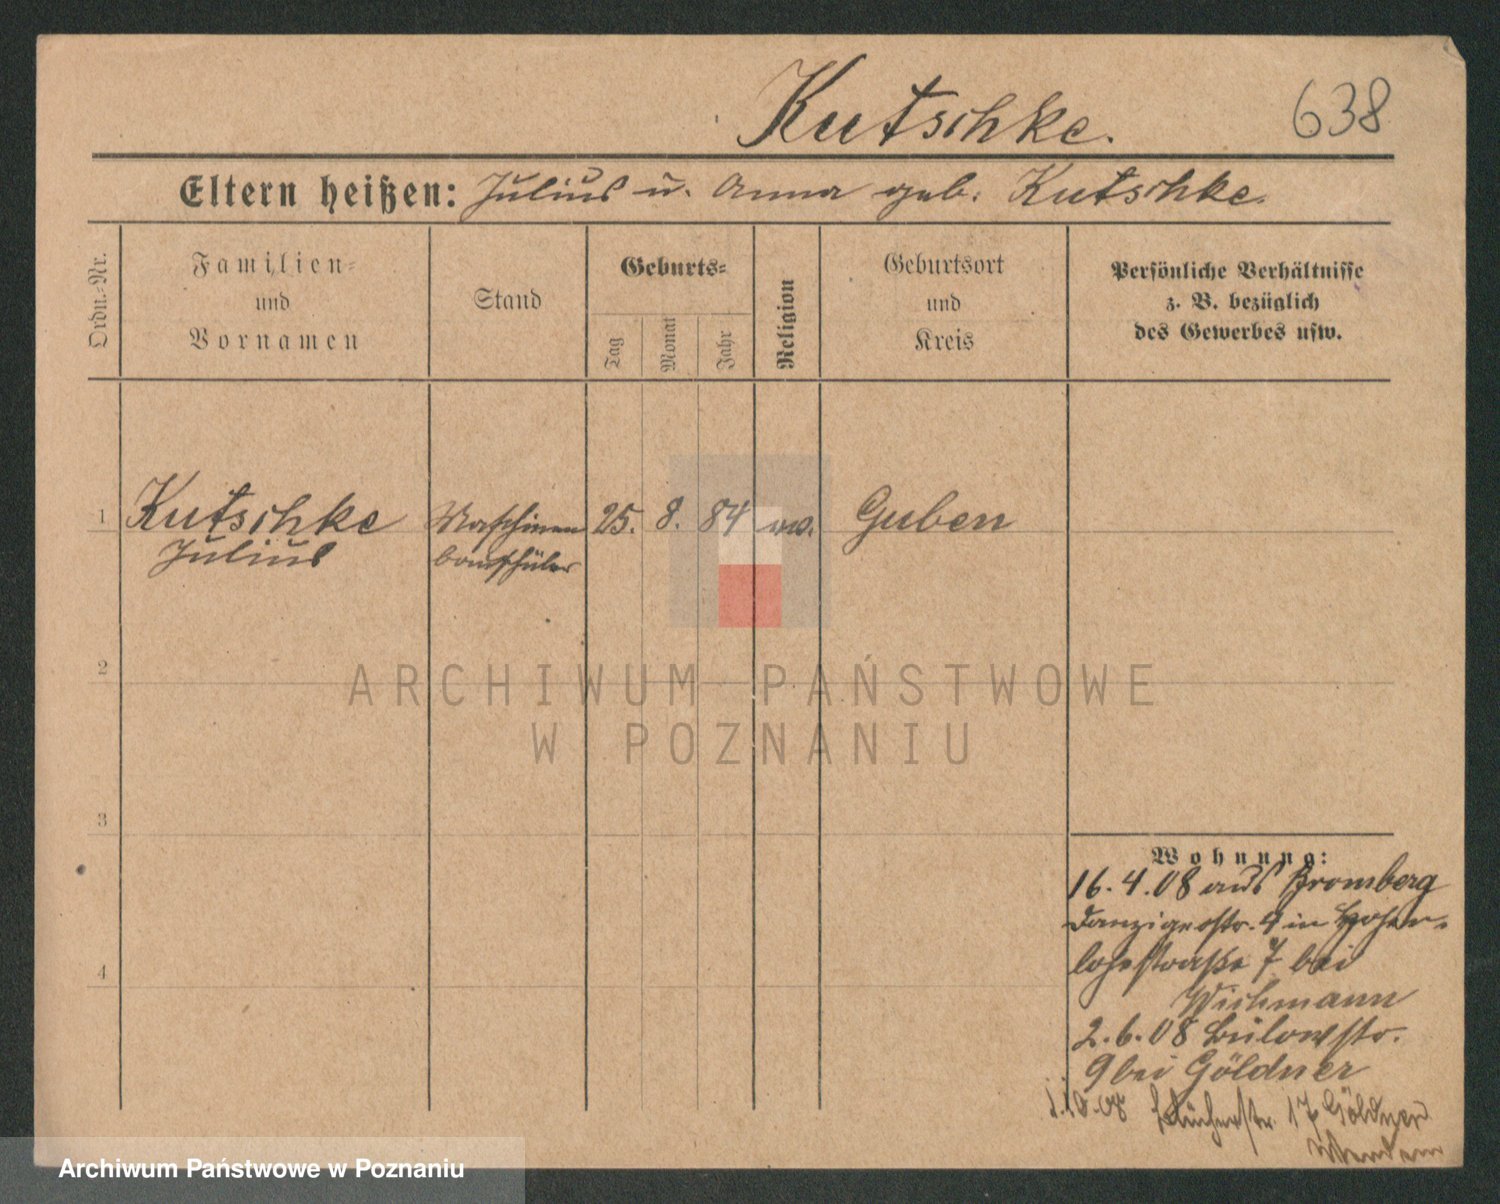 Kutschke.
638
Eltern heißen: Julius u. Anna geb. Kutschke.
Ordn.-Nr.
Familien-
und
Vornamen
Stand
Geburts-
Tag
Monat
Jahr
Religion
Geburtsort
und
Kreis
Persönliche Verhältnisse
z. B. bezüglich
des Gewerbes usw.
1
Kutschke
Julius
Maschinen
bauschüler
25.
8.
84
ev.
Guben
2
ARCHIWUM PAŃSTWOWE
W POZNANIU
3
4
Wohnung:
16.4.08 aus Bromberg
Danzigerstr. 9 in Hohen-
lohestraße 7 bei
Wichmann
2.6.08 Bülowstr.
9 bei Göldner
1.10.08 Blücherstr. 17 Göldner
Archiwum Państwowe w Poznaniu